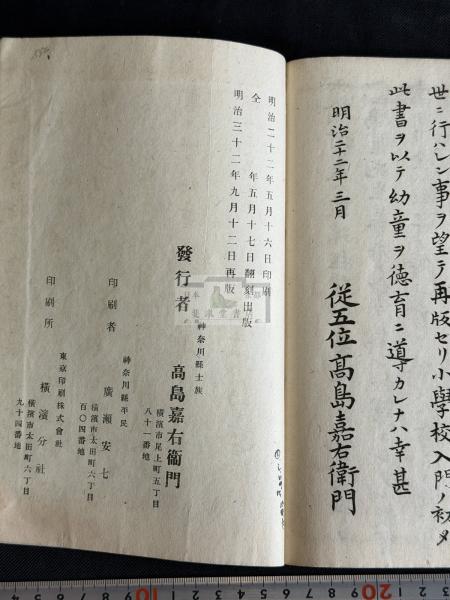 世ニ行ハレン事ヲ望テ再版セリ小學校入門ノ初メ
此書ヲ以テ幼童ヲ徳育ニ導カレナハ幸甚
明治廿二年三月
従五位高島嘉右衛門
明治二十二年五月十六日印刷
全 年五月十七日翻刻出版
明治三十二年九月十二日再版
神奈川縣士族
發行者 高島嘉右衞門
橫濱市尾上町五丁目
八十一番地
神奈川縣平民
印刷者 廣瀬安七
橫濱市太田町六丁目
百〇四番地
東京印刷株式會社
印刷所 橫濱分社
橫濱市太田町六丁目
九十四番地